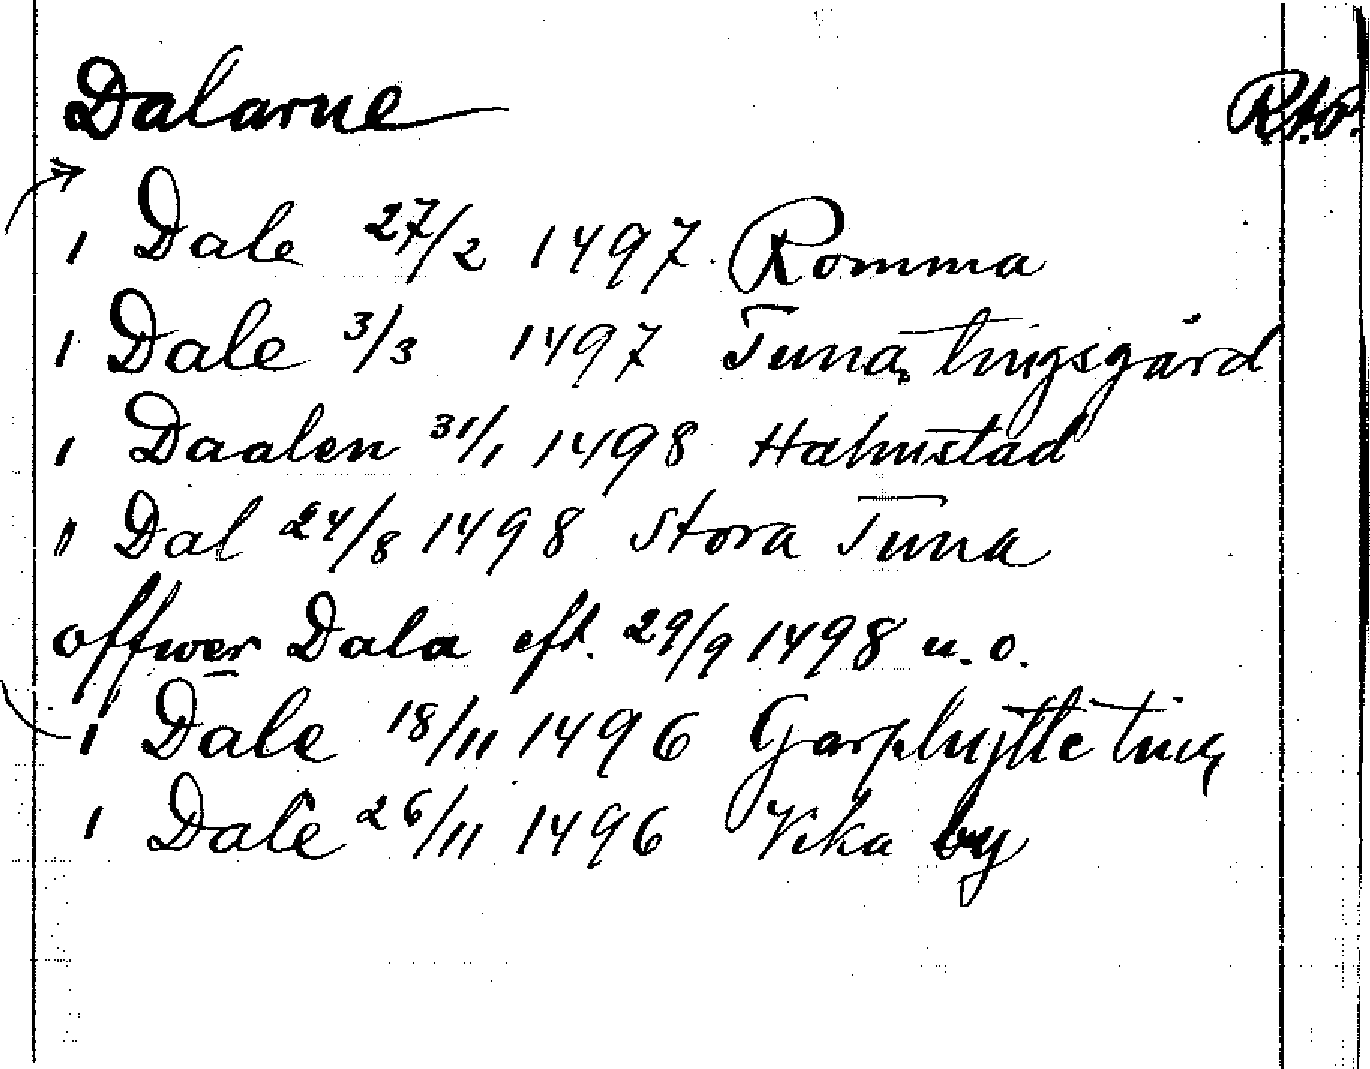 Dalarne R.A.P.
i Dale 27/2 1497 Romma
i Dale 3/3 1497 Tuna tingsgård
i Daalen 31/1 1498 Halmstad
i Dal 24/8 1498 Stora Tuna
offwer Dala eft. 29/9 1498 u. o.
i Dale 18/11 1496 Garphytte ting
i Dale 26/11 1496 Vika by